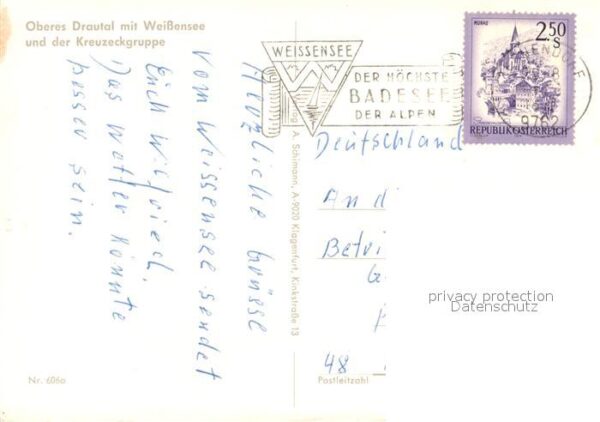 Oberes Drautal mit Weißensee
und der Kreuzeckgruppe
WEISSENSEE
DER HÖCHSTE
BADESEE
DER ALPEN
MURAU
2.50
S
REPUBLIK ÖSTERREICH
9762
Herzliche Grüsse
vom Weissensee sendet
Euch Wilfried.
Das Wetter könnte
besser sein.
A. Schimann, A-9020 Klagenfurt, Kinkstraße 13
Deutschland
An di
Betri
G
48
privacy protection
Datenschutz
Postleitzahl
Nr. 606a